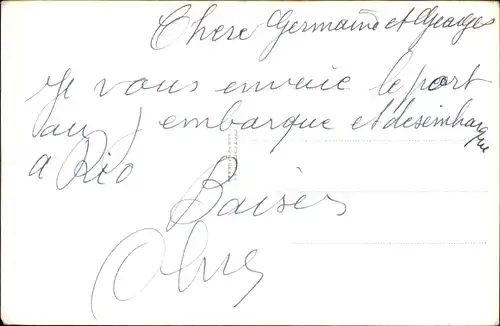 Chere Germaine et Georges
Je vous envoie le port
au j embarque et desembarque
a Rio
Baiser